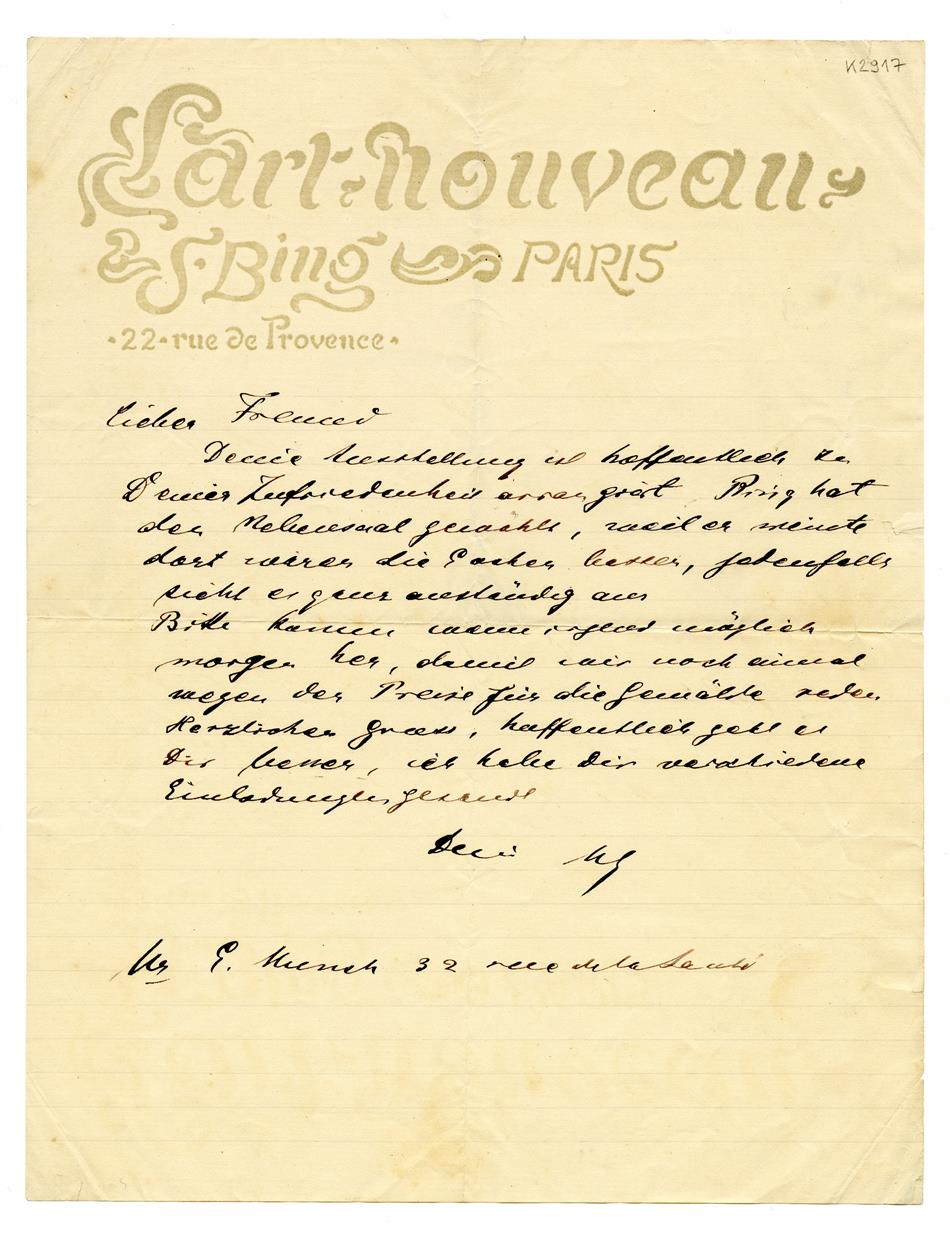 K2917
L'art nouveau
S. Bing PARIS
·22· rue de Provence·
Lieber Freund
Deine Ausstellung ist hoffentlich zu
Deiner Zufriedenheit arrangirt Bing hat
den Nebensaal gewählt, weil er meinte
dort wären die besser, jedenfalls
sieht es ganz anständig aus
Bitte komm wenn irgend möglich
morgen her, damit wir noch einmal
wegen der Preise für die Gemälde reden
Herzlichen Gruss, hoffentlich geht es
Dir besser, ich habe Dir verschiedene
Einladungen gesandt
Dein
Mr E. Munch 32 rue de la Santé